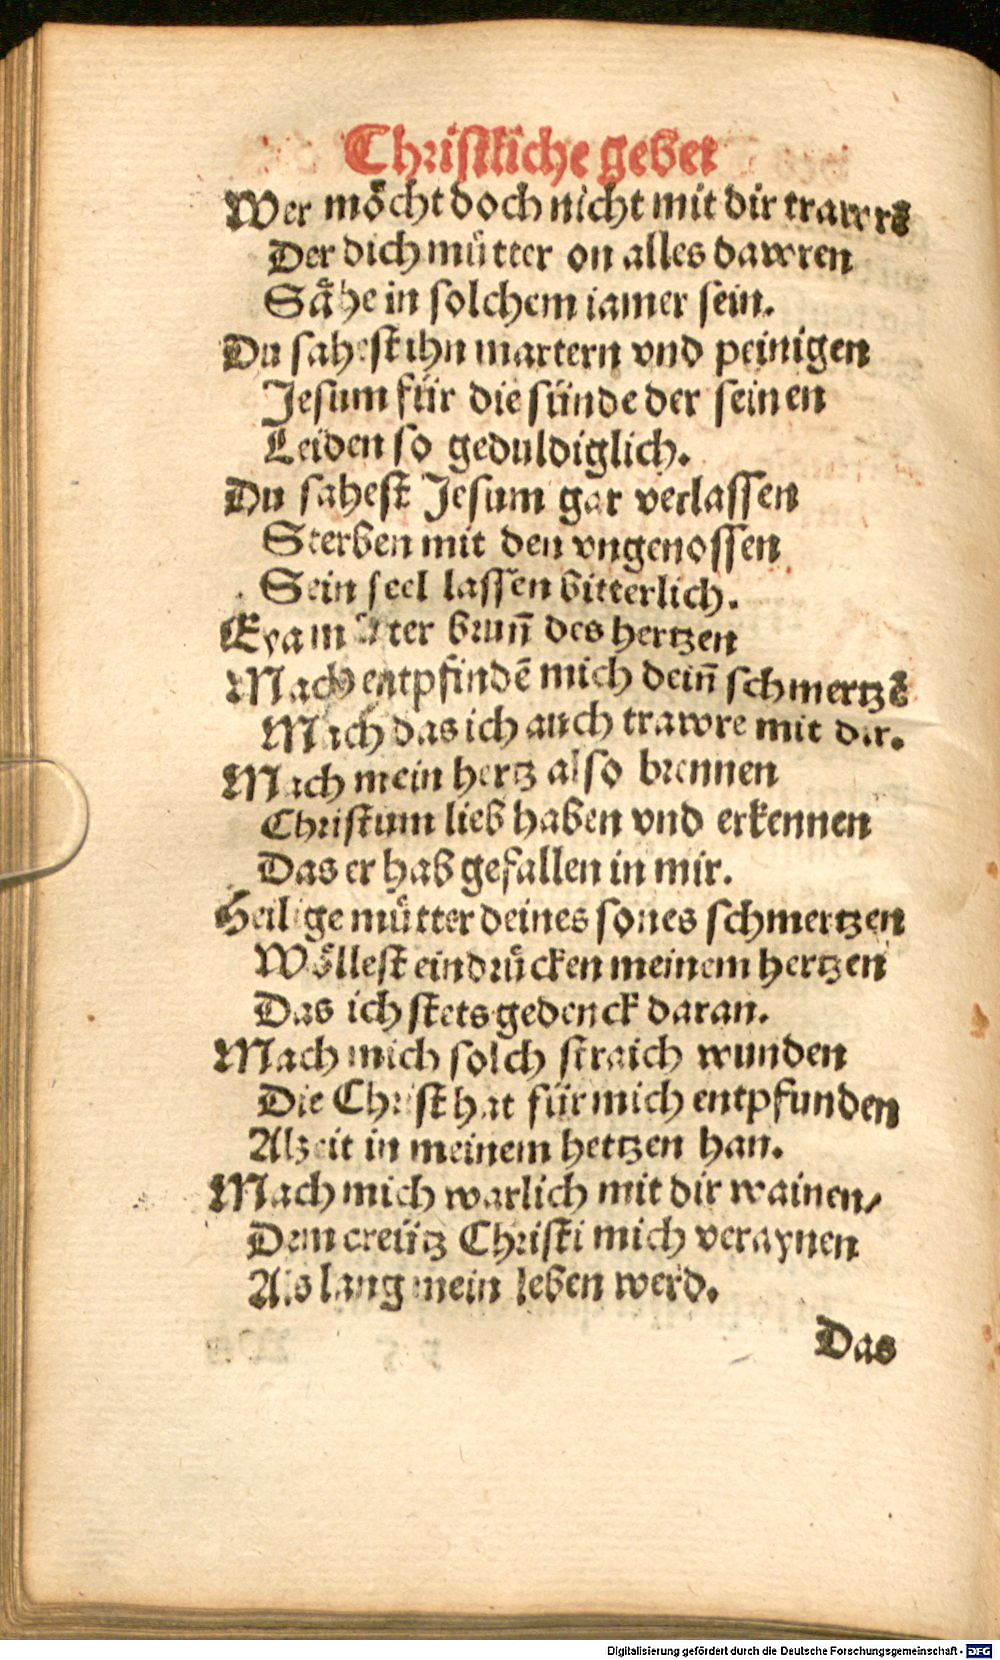 Christliche gebet
Wer möcht doch nicht mit dir trawrē
Der dich muͤtter on alles dawren
Saͤhe in solchem iamer sein.
Du sahest ihn martern vnd peinigen
Jesum für die sünde der seinen
Leiden so geduldiglich.
Du sahest Jesum gar verlassen
Sterben mit den vngenossen
Sein seel lassen bitterlich.
Eya muͤter brun̄ des hertzen
Mach entpfindē mich dein̄ schmertzē
Mach das ich auch trawre mit dir.
Mach mein hertz also brennen
Christum lieb haben vnd erkennen
Das er hab gefallen in mir.
Heilige muͤtter deines sones schmertzen
Woͤllest eindruͤcken meinem hertzen
Das ich stets gedenck daran.
Mach mich solch straich wunden
Die Christ hat für mich entpfunden
Alzeit in meinem hertzen han.
Mach mich warlich mit dir wainen/
Dem creütz Christi mich veraynen
Als lang mein leben werd.
Das
Digitalisierung gefördert durch die Deutsche Forschungsgemeinschaft - DFG